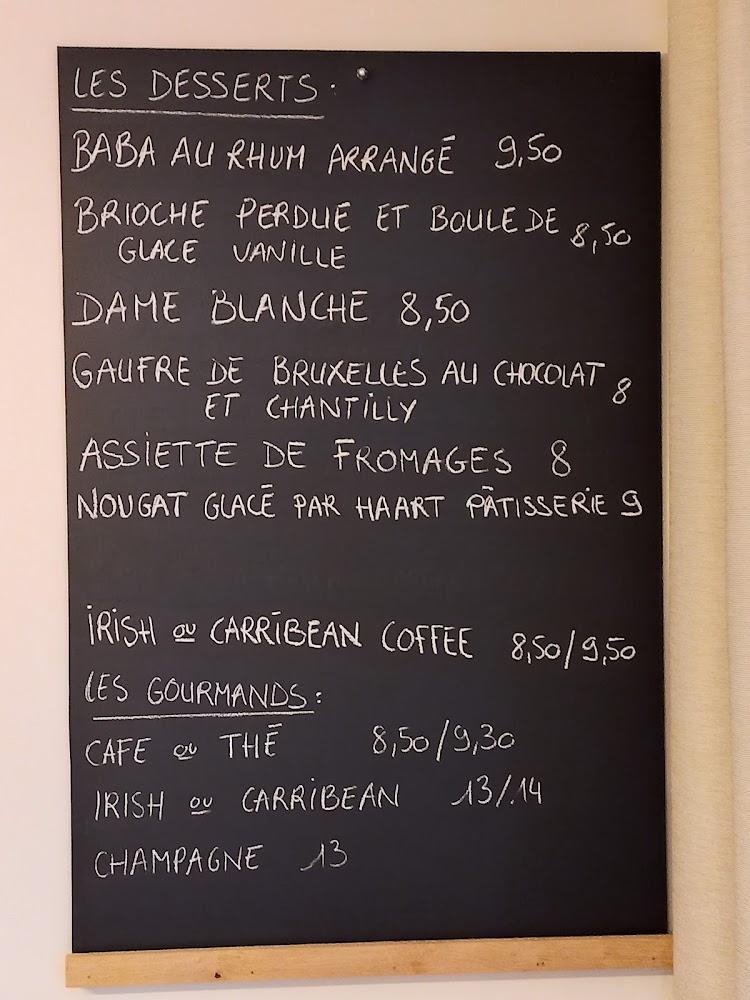 LES DESSERTS :
BABA AU RHUM ARRANGÉ 9,50
BRIOCHE PERDUE ET BOULE DE 8,50
GLACE VANILLE
DAME BLANCHE 8,50
GAUFRE DE BRUXELLES AU CHOCOLAT 8
ET CHANTILLY
ASSIETTE DE FROMAGES 8
NOUGAT GLACÉ PAR HAART PÂTISSERIE 9
IRISH ou CARRIBEAN COFFEE 8,50/9,50
LES GOURMANDS :
CAFE ou THÉ 8,50/9,30
IRISH ou CARRIBEAN 13/14
CHAMPAGNE 13